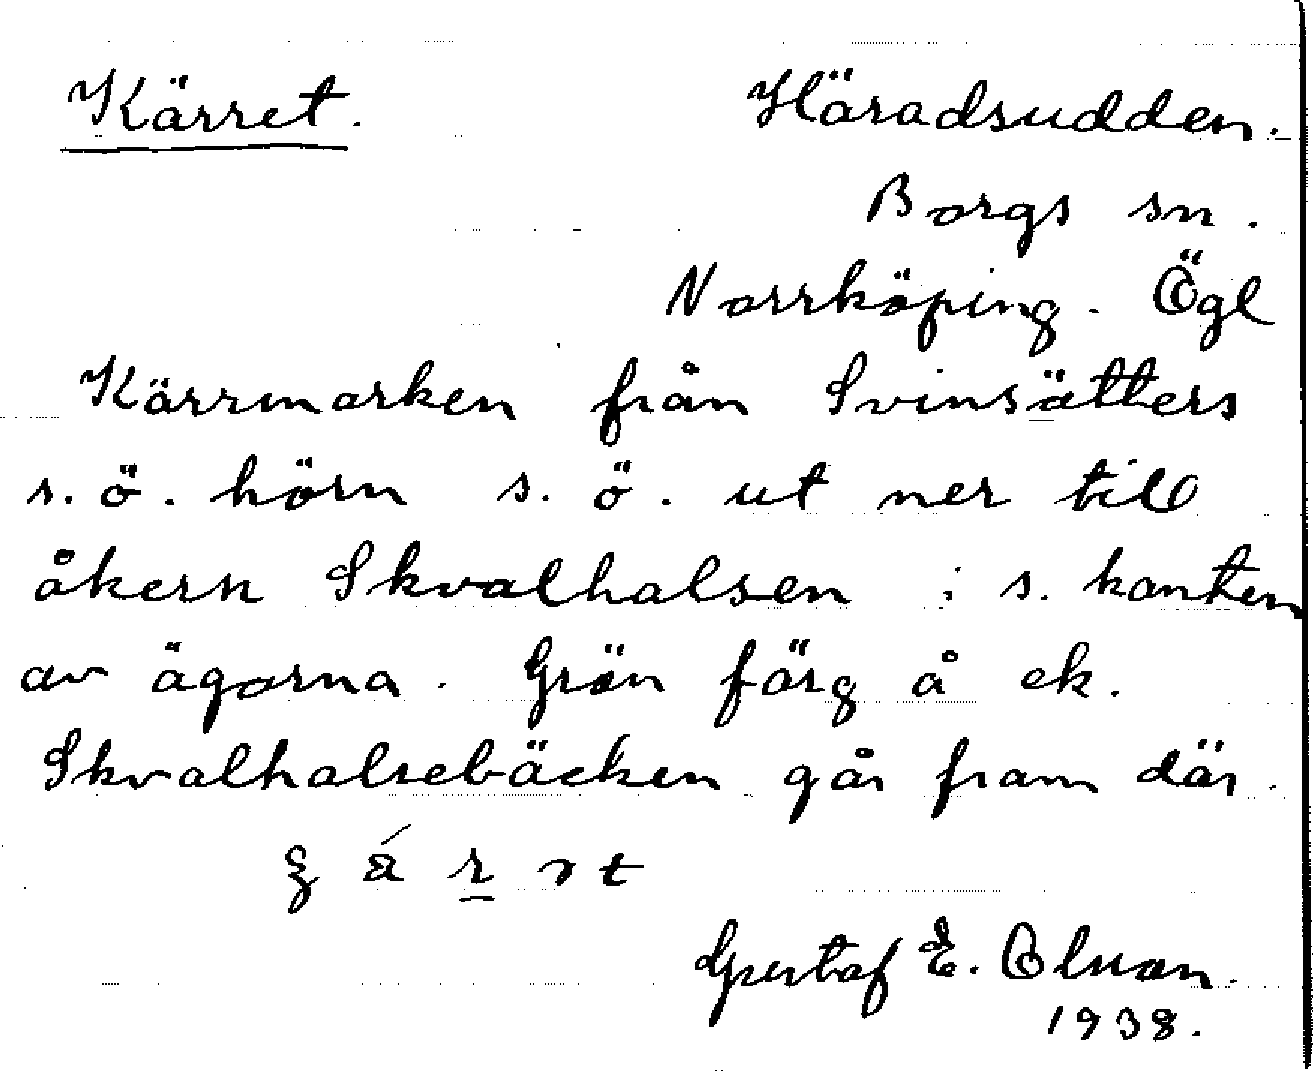 Kärret. Häradsudden.
Borgs sn.
Norrköping. Ögl
Kärrmarken från Svinsätters
s. ö. hörn s. ö. ut ner till
åkern Skvalhalsen i s. kanten
av ägorna. Grön färg å ek.
Skvalhalsebäcken går fram där.
Gustaf E. Olsson.
1938.